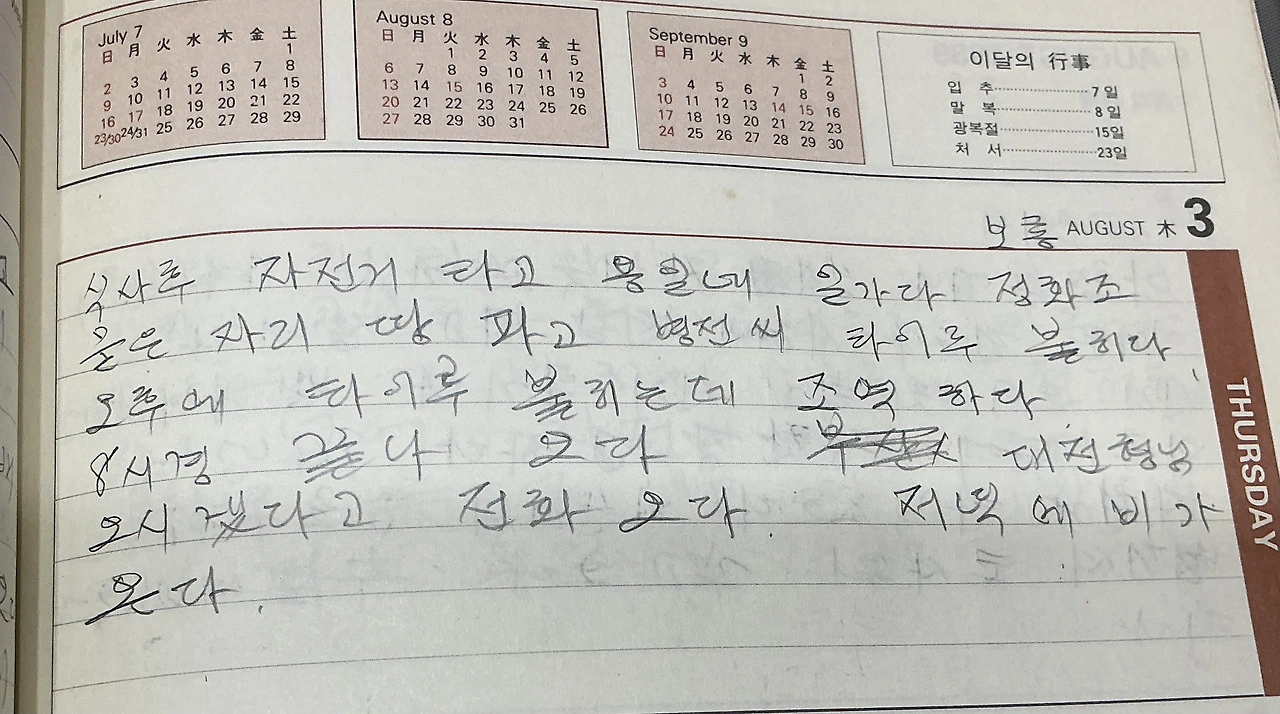 July 7
日 月 火 水 木 金 土
1
2 3 4 5 6 7 8
9 10 11 12 13 14 15
16 17 18 19 20 21 22
23/30 24/31 25 26 27 28 29
August 8
日 月 火 水 木 金 土
1 2 3 4 5
6 7 8 9 10 11 12
13 14 15 16 17 18 19
20 21 22 23 24 25 26
27 28 29 30 31
September 9
日 月 火 水 木 金 土
1 2
3 4 5 6 7 8 9
10 11 12 13 14 15 16
17 18 19 20 21 22 23
24 25 26 27 28 29 30
이달의 行事
입 추 7일
말 복 8일
광복절 15일
처 서 23일
보름 AUGUST 木 3
식사루 자전거 타고 용일네 일가다 정화조
묻은 자리 땅 파고 병전씨 타이루 붙히다
오후에 타이루 붙히는데 조역 하다
8시경 끝나 오다 대전형님
오시겠다고 전화 오다. 저녁에 비가
온다.
THURSDAY